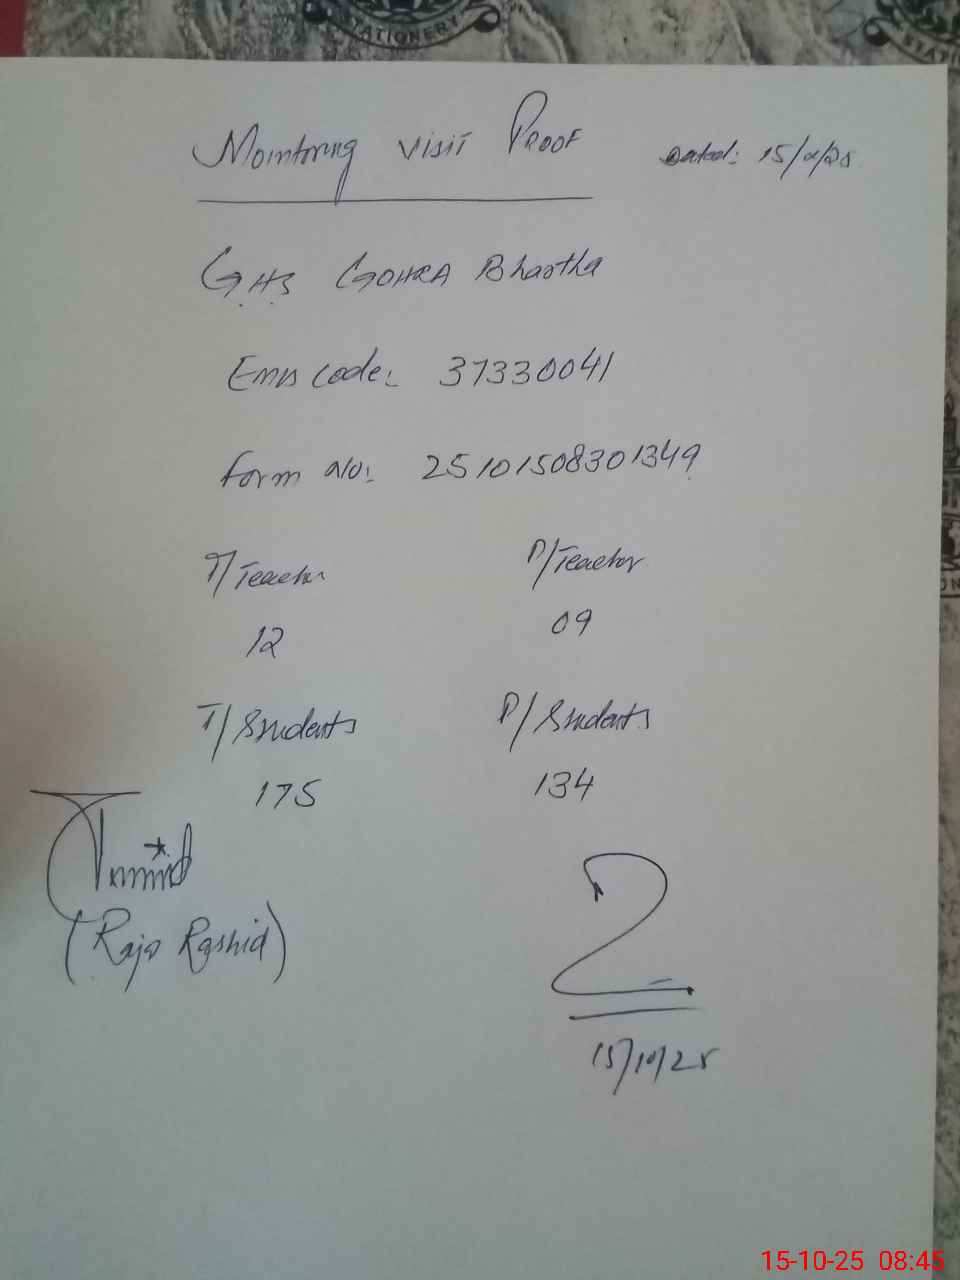 STATIONERY
Mointoring visit PROOF Dated: 15/10/25
GHS GOHRA Bhartha
Emis code: 37330041
Form No: 25101508301349
T/Teacher P/Teacher
12 09
T/Students P/Students
175 134
(Raja Rashid)
15/10/25
15-10-25 08:45